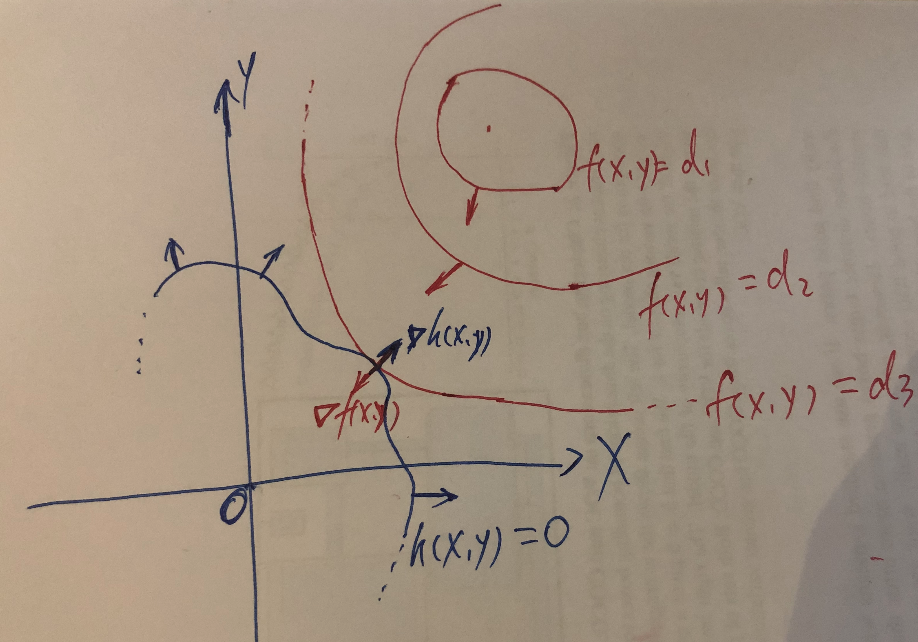 Y
f(x,y)=d1
f(x,y)=d2
∇h(x,y)
∇f(x,y)
f(x,y)=d3
X
O
h(x,y)=0